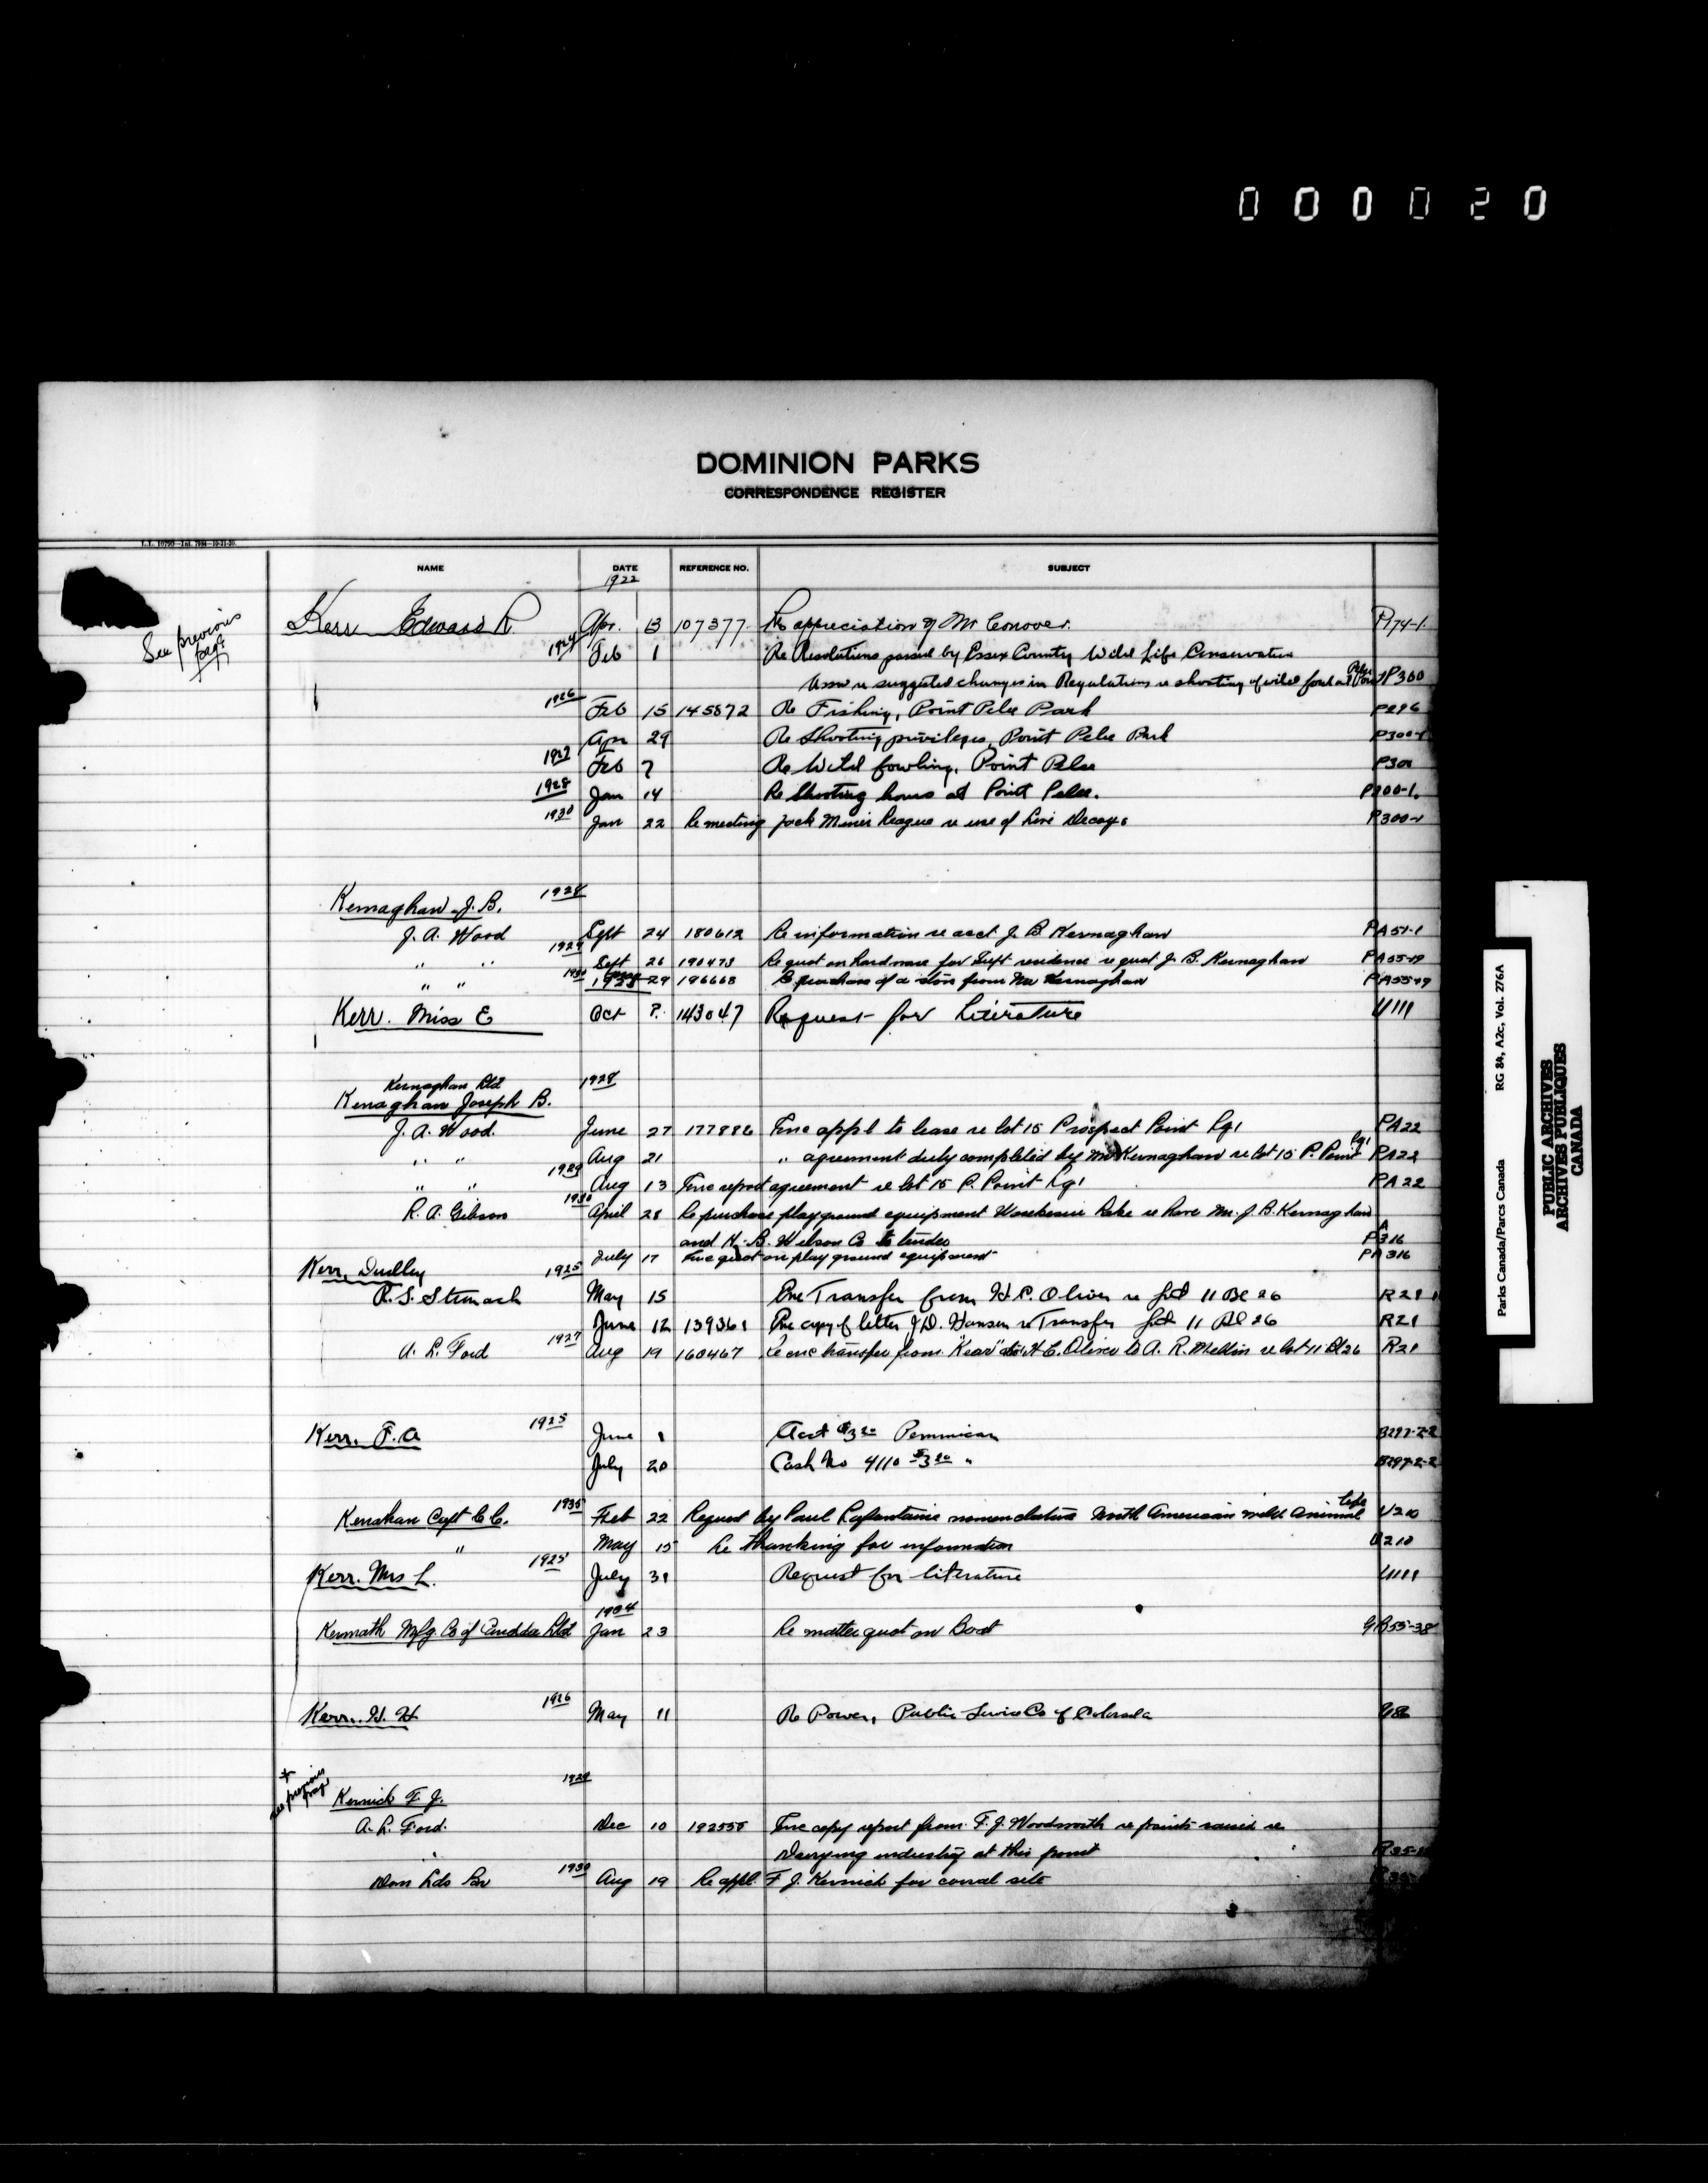 000020
DOMINION PARKS
CORRESPONDENCE REGISTER
NAME DATE REFERENCE NO. SUBJECT
1922
See previous page
Kerr Edward R. Apr. 13 107377 Re appreciation of Mr Conover. P174-1
1924 Feb 1 Re Resolutions passed by Essex County Wild Life Conservation
Assn re suggested changes in Regulations re shooting of wild fowl at Pelee Point P300
1926 Feb 15 145872 Re Fishing, Point Pelee Park P296
Apr 29 Re Shooting privileges, Point Pelee Park P300-1
1927 Feb 7 Re Wild fowling, Point Pelee P300
1928 Jan 14 Re Shooting hours at Point Pelee. P300-1.
1930 Jan 22 Re meeting Jack Miner League re use of Live Decoys P300-1
Kernaghan J. B. 1928
J. A. Wood Sept 24 180612 Re information re acct J. B Kernaghan PA51-1
1929
" " Sept 26 190473 Re quot on hardware for Supt residence re quot J. B. Kernaghan PA55-19
" " 1930 29 196668 Re purchase of a stove from Mr Kernaghan PA55-19
1925
Kerr. Miss E Oct 7. 143047 Request for Literature U111
Kernaghan Ltd 1928
Kernaghan Joseph B.
J. A. Wood. June 27 177886 Enc appl to lease re lot 15 Prospect Point Lg1 PA22
" " Aug 21 " agreement duly completed by Mr Kernaghan re lot 15 P. Point Lg1 PA22
" " 1929 Aug 13 Enc report agreement re lot 15 P. Point Lg1 PA22
R. A. Gibson 1930 April 28 Re purchase playground equipment Waskesiu Lake re have Mr. J. B. Kernaghan
and H. B. Wilson Co to tender PA316
July 17 Enc quot on play ground equipment PA316
Kerr, Dudley 1925
R. S. Stronach May 15 Enc Transfer from H. C. Oliver re Lot 11 Bl 26 R21
June 12 139361 Enc copy of letter J. D. Hansen re Transfer Lot 11 Bl 26 R21
A. L. Ford 1927 Aug 19 160467 Re enc transfer from "Kear" H. C. Oliver to A. R. Mellin re lot 11 Bl 26 R21
Kerr. F. A 1925 June 1 Acct $3.20 Pemmican B297-2-2
July 20 Cash No 4110 $3.20 " B297-2-2
Kernahan Capt C C. 1935 Feb 22 Request by Paul Lafontaine nomenclature North American wild animal life U210
" May 15 Re thanking for information U210
Kerr. Mrs L. 1925 July 31 Request for literature U111
1934
Kermath Mfg. Co of Canada Ltd Jan 23 Re matter quot on Boat GB55-38
Kerr. H. H 1926 May 11 Re Power, Public Service Co of Colorado U86
* see previous page
Kernick F. J. 1929
A. L. Ford. Dec 10 192555 Enc copy report from F. J. Woodsworth re points raised re
Dairying industry at this point
Dom Lds 1930 Aug 19 Re appl F J. Kernick for corral site
Parks Canada/Parcs Canada RG 84, A2c, Vol. 276A
PUBLIC ARCHIVES
ARCHIVES PUBLIQUES
CANADA